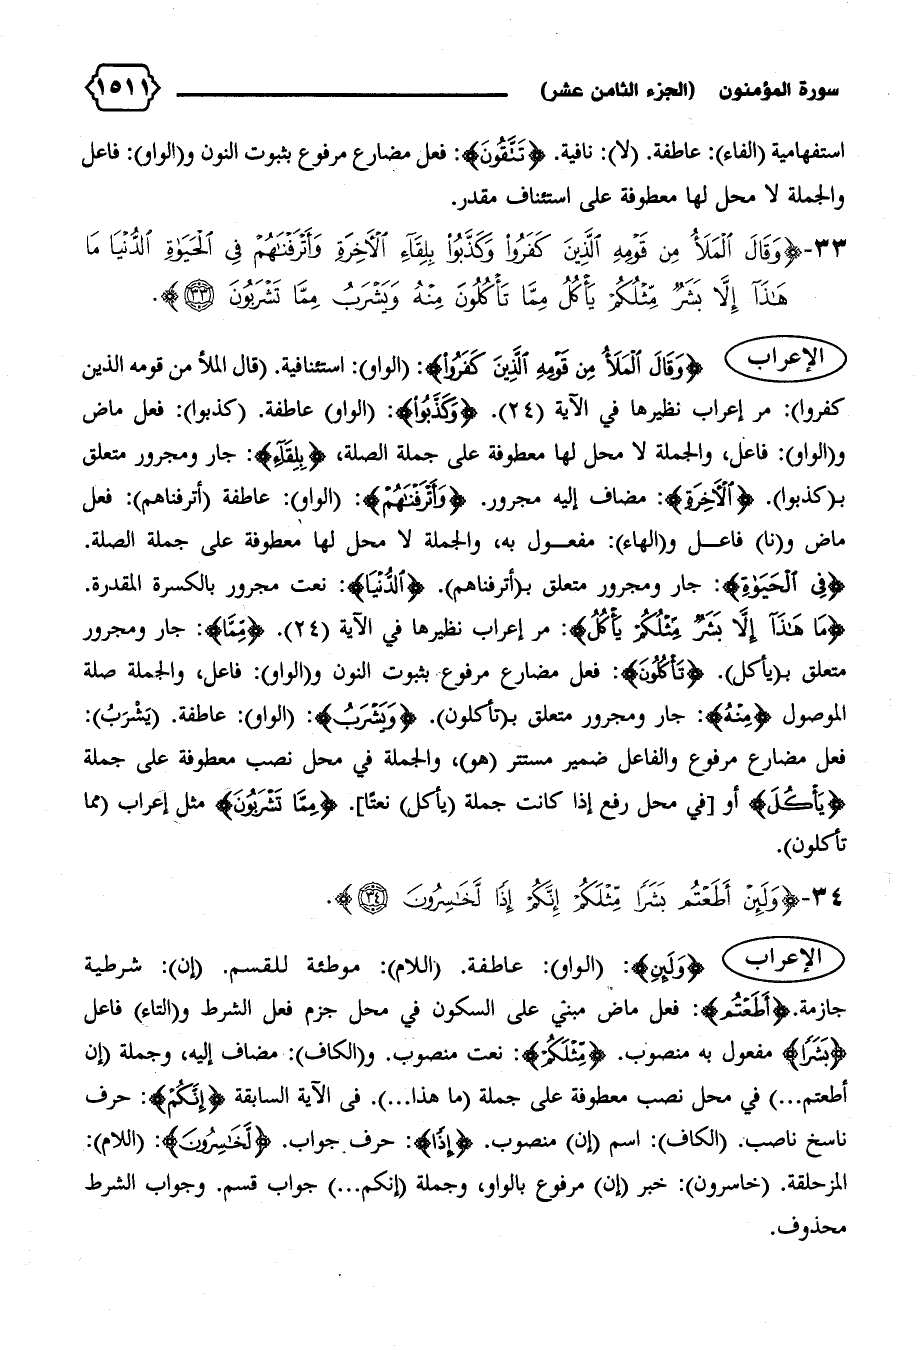 سورة المؤمنون (الجزء الثامن عشر) ١٥١١
استفهامية (الفاء): عاطفة. (لا): نافية. ﴿تَتَّقُونَ﴾: فعل مضارع مرفوع بثبوت النون و(الواو): فاعل
والجملة لا محل لها معطوفة على استئناف مقدر.
٣٣-﴿وَقَالَ ٱلْمَلَأُ مِن قَوْمِهِ ٱلَّذِينَ كَفَرُواْ وَكَذَّبُواْ بِلِقَآءِ ٱلْأَخِرَةِ وَأَتْرَفْنَٰهُمْ فِى ٱلْحَيَوٰةِ ٱلدُّنْيَا مَا
هَٰذَآ إِلَّا بَشَرٌ مِّثْلُكُمْ يَأْكُلُ مِمَّا تَأْكُلُونَ مِنْهُ وَيَشْرَبُ مِمَّا تَشْرَبُونَ ٣٣﴾.
الإعراب ﴿وَقَالَ ٱلْمَلَأُ مِن قَوْمِهِ ٱلَّذِينَ كَفَرُواْ﴾: (الواو): استئنافية. (قال الملأ من قومه الذين
كفروا): مر إعراب نظيرها في الآية (٢٤). ﴿وَكَذَّبُواْ﴾: (الواو) عاطفة. (كذبوا): فعل ماض
و(الواو): فاعل، والجملة لا محل لها معطوفة على جملة الصلة، ﴿بِلِقَآءِ﴾: جار ومجرور متعلق
بـ(كذبوا). ﴿ٱلْأَخِرَةِ﴾: مضاف إليه مجرور. ﴿وَأَتْرَفْنَٰهُمْ﴾: (الواو): عاطفة (أترفناهم): فعل
ماض و(نا) فاعـل و(الهاء): مفعـول به، والجملة لا محل لها معطوفة على جملة الصلة.
﴿فِى ٱلْحَيَوٰةِ﴾: جار ومجرور متعلق بـ(أترفناهم). ﴿ٱلدُّنْيَا﴾: نعت مجرور بالكسرة المقدرة.
﴿مَا هَٰذَآ إِلَّا بَشَرٌ مِّثْلُكُمْ يَأْكُلُ﴾: مر إعراب نظيرها في الآية (٢٤). ﴿مِمَّا﴾: جار ومجرور
متعلق بـ(يأكل). ﴿تَأْكُلُونَ﴾: فعل مضارع مرفوع بثبوت النون و(الواو): فاعل، والجملة صلة
الموصول ﴿مِنْهُ﴾: جار ومجرور متعلق بـ(تأكلون). ﴿وَيَشْرَبُ﴾: (الواو): عاطفة. (يَشْرَبُ):
فعل مضارع مرفوع والفاعل ضمير مستتر (هو)، والجملة في محل نصب معطوفة على جملة
﴿يَأْكُلَ﴾ أو [في محل رفع إذا كانت جملة (يأكل) نعتًا]. ﴿مِمَّا تَشْرَبُونَ﴾ مثل إعراب (مما
تأكلون).
٣٤-﴿وَلَئِنْ أَطَعْتُم بَشَرًا مِّثْلَكُمْ إِنَّكُمْ إِذًا لَّخَٰسِرُونَ ٣٤﴾.
الإعراب ﴿وَلَئِن﴾: (الواو): عاطفة. (اللام): موطئة للقسم. (إن): شرطية
جازمة.﴿أَطَعْتُم﴾: فعل ماض مبني على السكون في محل جزم فعل الشرط و(التاء) فاعل
﴿بَشَرًا﴾ مفعول به منصوب. ﴿مِّثْلَكُمْ﴾: نعت منصوب. و(الكاف): مضاف إليه، وجملة (إن
أطعتم...) في محل نصب معطوفة على جملة (ما هذا...). فى الآية السابقة ﴿إِنَّكُمْ﴾: حرف
ناسخ ناصب. (الكاف): اسم (إن) منصوب. ﴿إِذًا﴾: حرف جواب. ﴿لَّخَٰسِرُونَ﴾: (اللام):
المزحلقة. (خاسرون): خبر (إن) مرفوع بالواو، وجملة (إنكم...) جواب قسم. وجواب الشرط
محذوف.